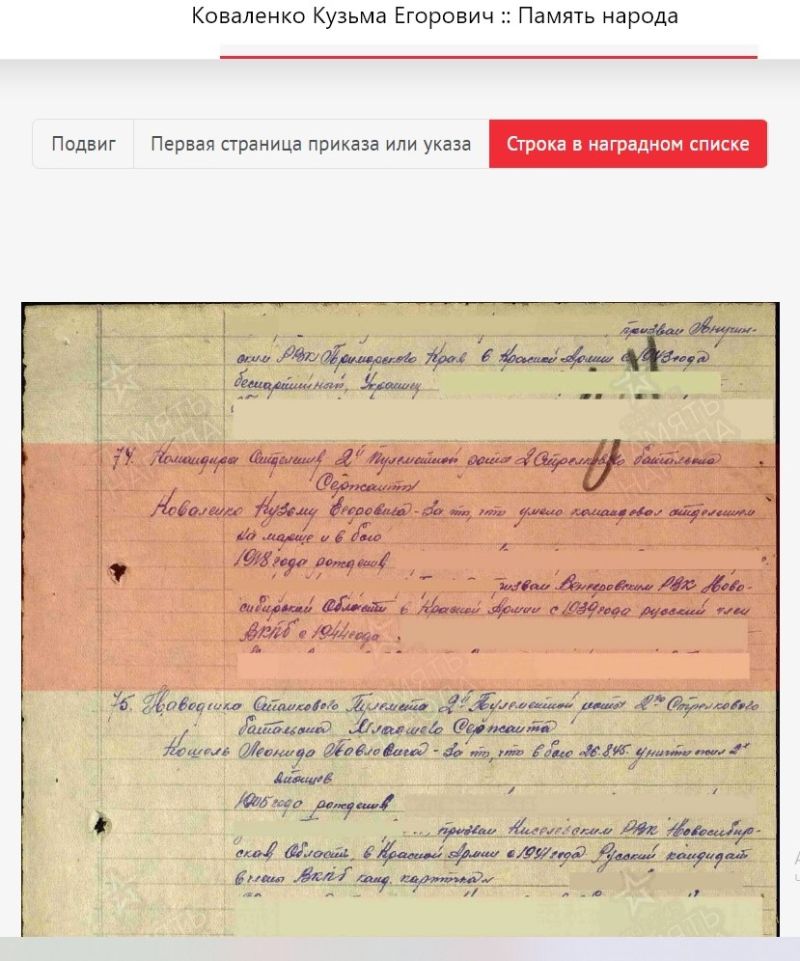 Коваленко Кузьма Егорович :: Память народа
Подвиг
Первая страница приказа или указа
Строка в наградном списке
призван
ским РВК Приморского Края в Красной Армии с 1943 года
беспартийный, Украинец
74. Командира Отделения 2й Пулеметной роты 2 Стрелкового батальона
Сержанта
Коваленко Кузьму Егоровича - За то, что умело командовал отделением
на марше и в бою
1918 года рождения
призван Венгеровским РВК Ново-
сибирской Области в Красной Армии с 1939 года русский член
ВКПб с 1944 года
75. Наводчика Станкового Пулемета 2й Пулеметной роты 2го Стрелкового
батальона Младшего Сержанта
Кошель Леонида Павловича - За то, что в бою 26.8.45 уничтожил 2х
японцев
1905 года рождения
призван Киселевским РВК Новосибир-
ской Области, в Красной Армии с 1941 года Русский кандидат
ВКПб канд. карточка
ПАМЯТЬ
НАРОДА